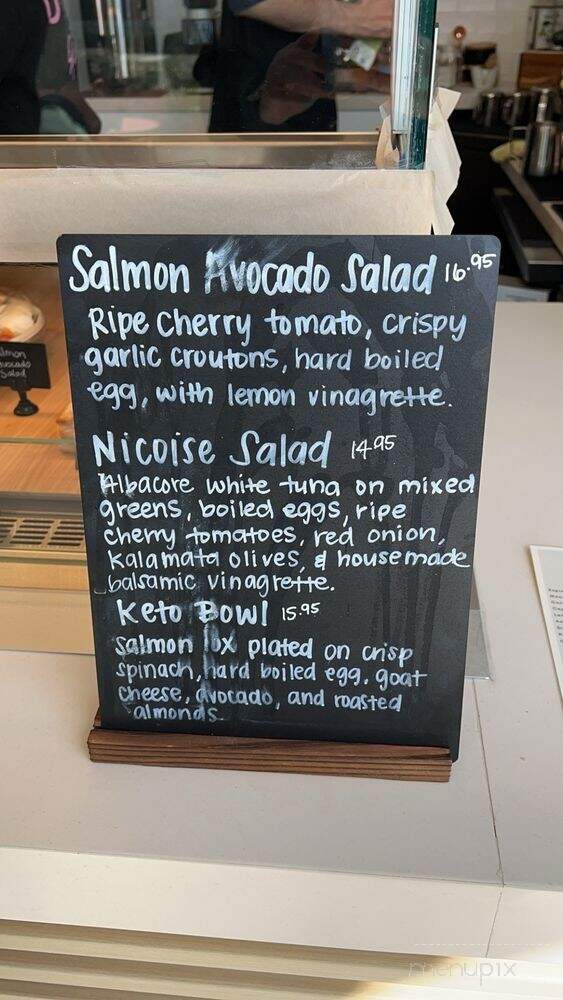 Salmon Avocado Salad 16.95
Ripe Cherry tomato, crispy
garlic croutons, hard boiled
egg, with lemon vinagrette.
Nicoise Salad 14.95
Albacore white tuna on mixed
greens, boiled eggs, ripe
cherry tomatoes, red onion,
Kalamata olives, & housemade
balsamic vinagrette.
Keto Bowl 15.95
Salmon lox plated on crisp
spinach, hard boiled egg, goat
cheese, avocado, and roasted
almonds
Salmon
Avocado
Salad
menupix